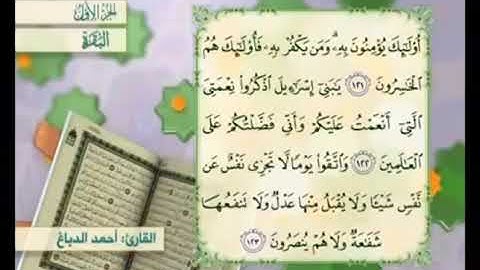 الجزء الأول
البقرة
أُوْلَٰٓئِكَ يُؤْمِنُونَ بِهِۦۗ وَمَن يَكْفُرْ بِهِۦ فَأُوْلَٰٓئِكَ هُمُ
ٱلْخَٰسِرُونَ ١٢١ يَٰبَنِىٓ إِسْرَٰٓءِيلَ ٱذْكُرُوا۟ نِعْمَتِىَ
ٱلَّتِىٓ أَنْعَمْتُ عَلَيْكُمْ وَأَنِّى فَضَّلْتُكُمْ عَلَى
ٱلْعَٰلَمِينَ ١٢٢ وَٱتَّقُوا۟ يَوْمًا لَّا تَجْزِى نَفْسٌ عَن
نَّفْسٍ شَيْـًٔا وَلَا يُقْبَلُ مِنْهَا عَدْلٌ وَلَا تَنفَعُهَا
شَفَٰعَةٌ وَلَا هُمْ يُنصَرُونَ ١٢٣
القارئ: أحمد الدباغ